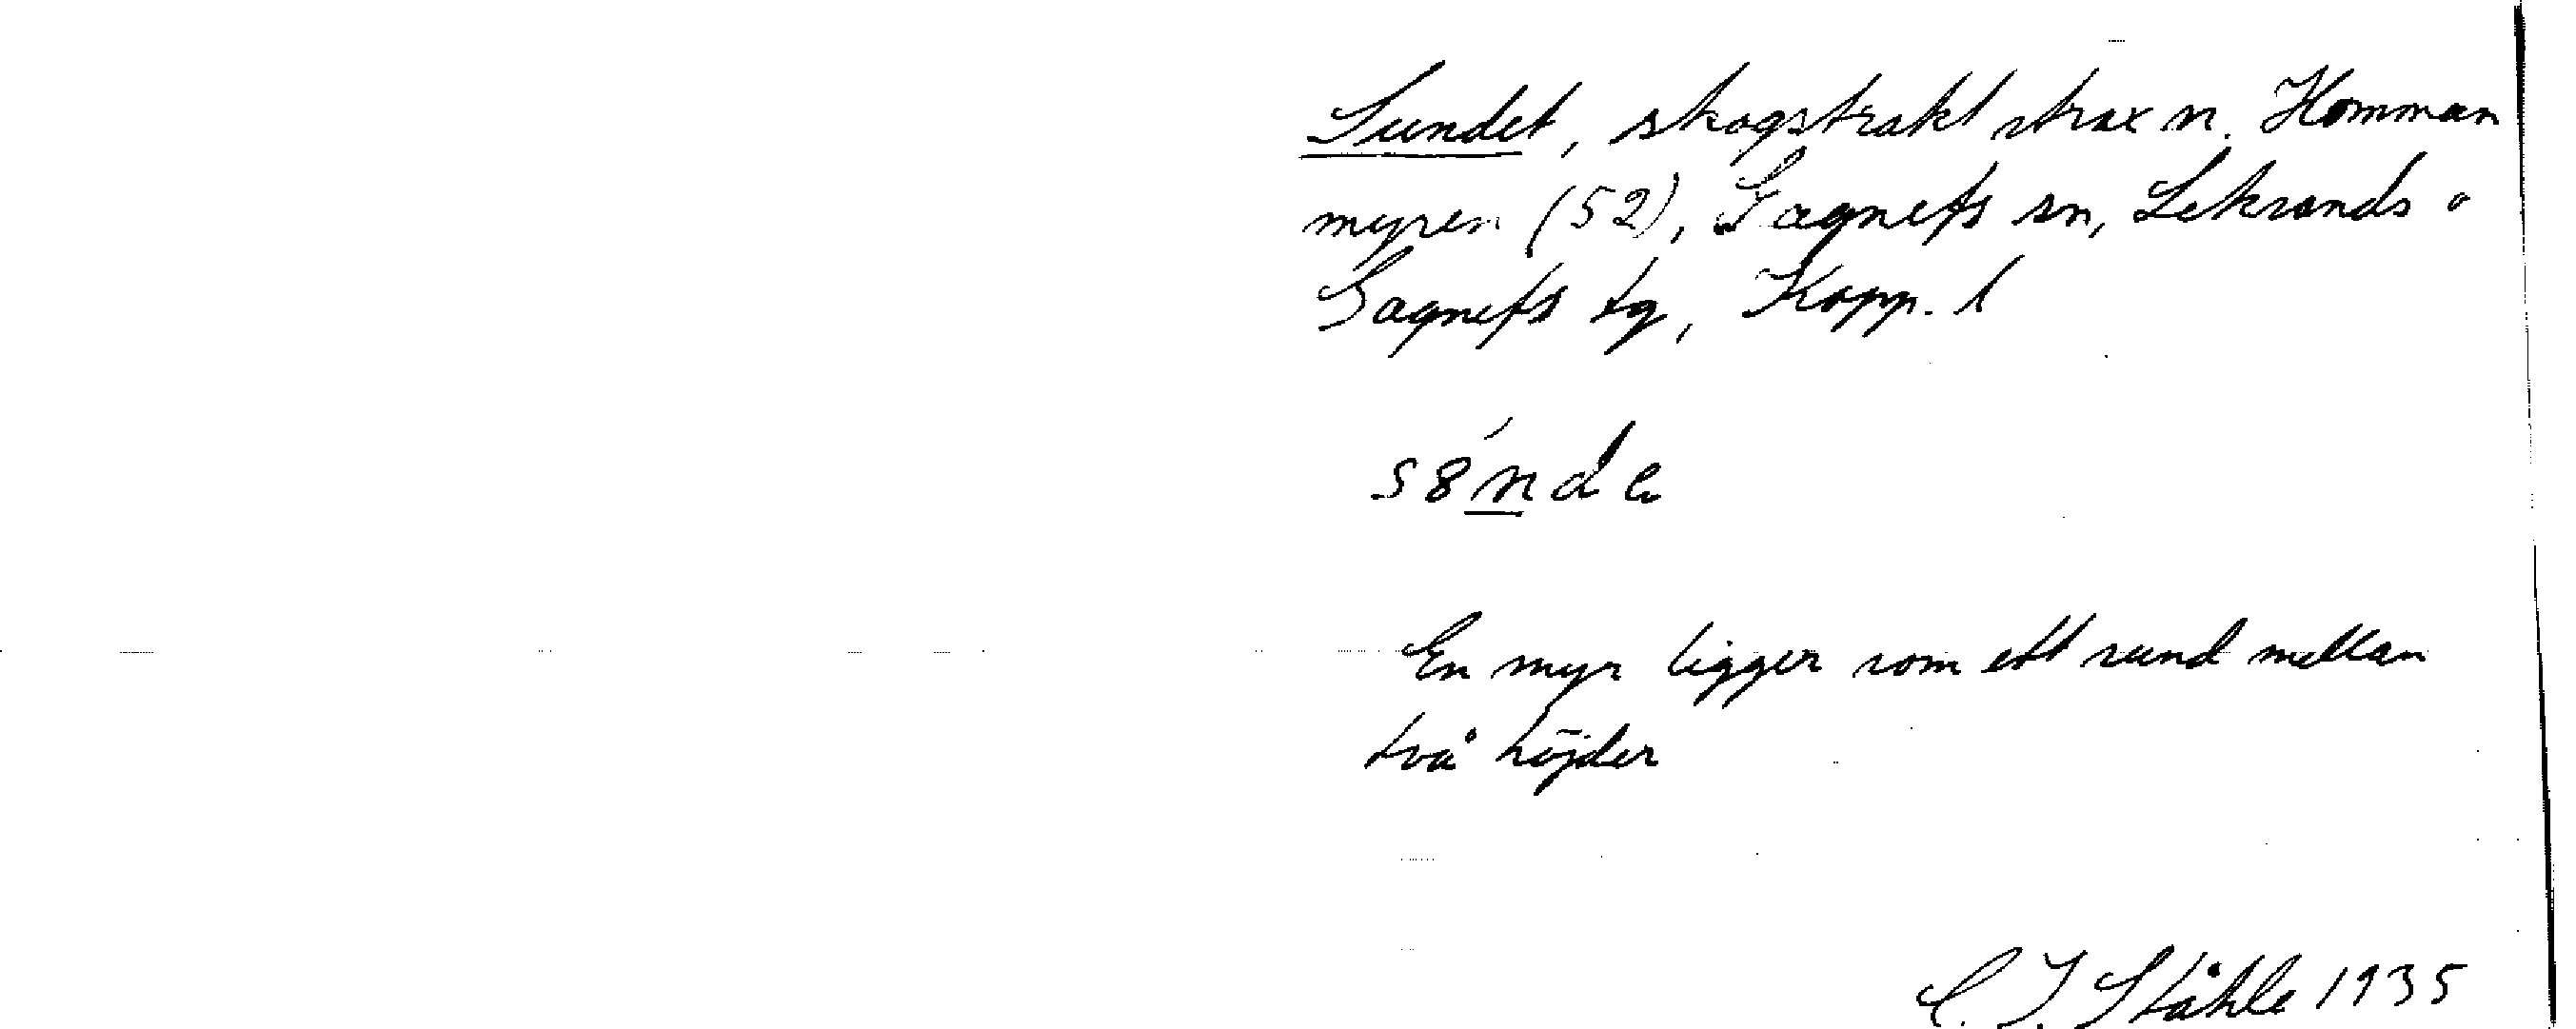 Sundet, skogstrakt strax n. Homman
myren (52), Gagnefs sn, Leksands o
Gagnefs tg, Kopp. l
s8́nde
En myr ligger som ett sund mellan
två höjder
C. I. Ståhle 1935